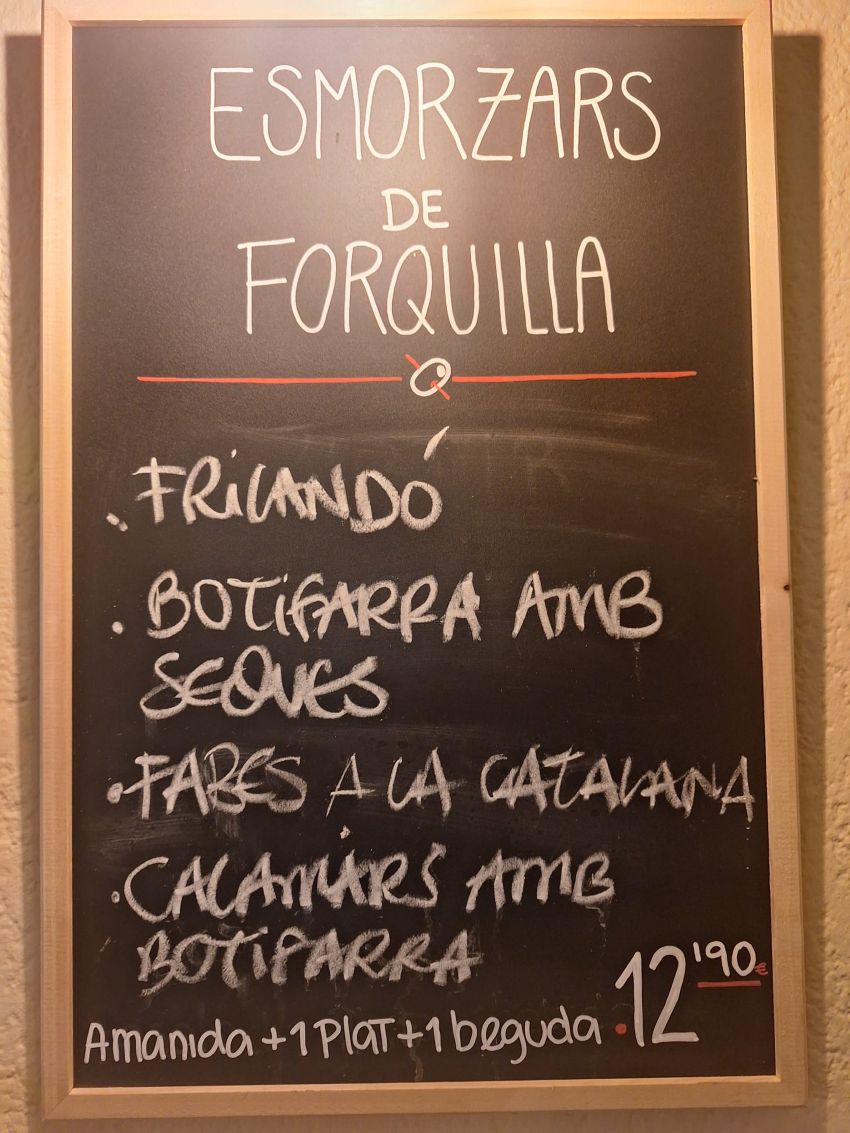 ESMORZARS
DE
FORQUILLA
. FRICANDÓ
. BOTIFARRA AMB
SEQUES
. FABES A LA CATALANA
. CALAMARS AMB
BOTIFARRA
Amanida + 1 PlaT + 1 beguda . 12'90 €